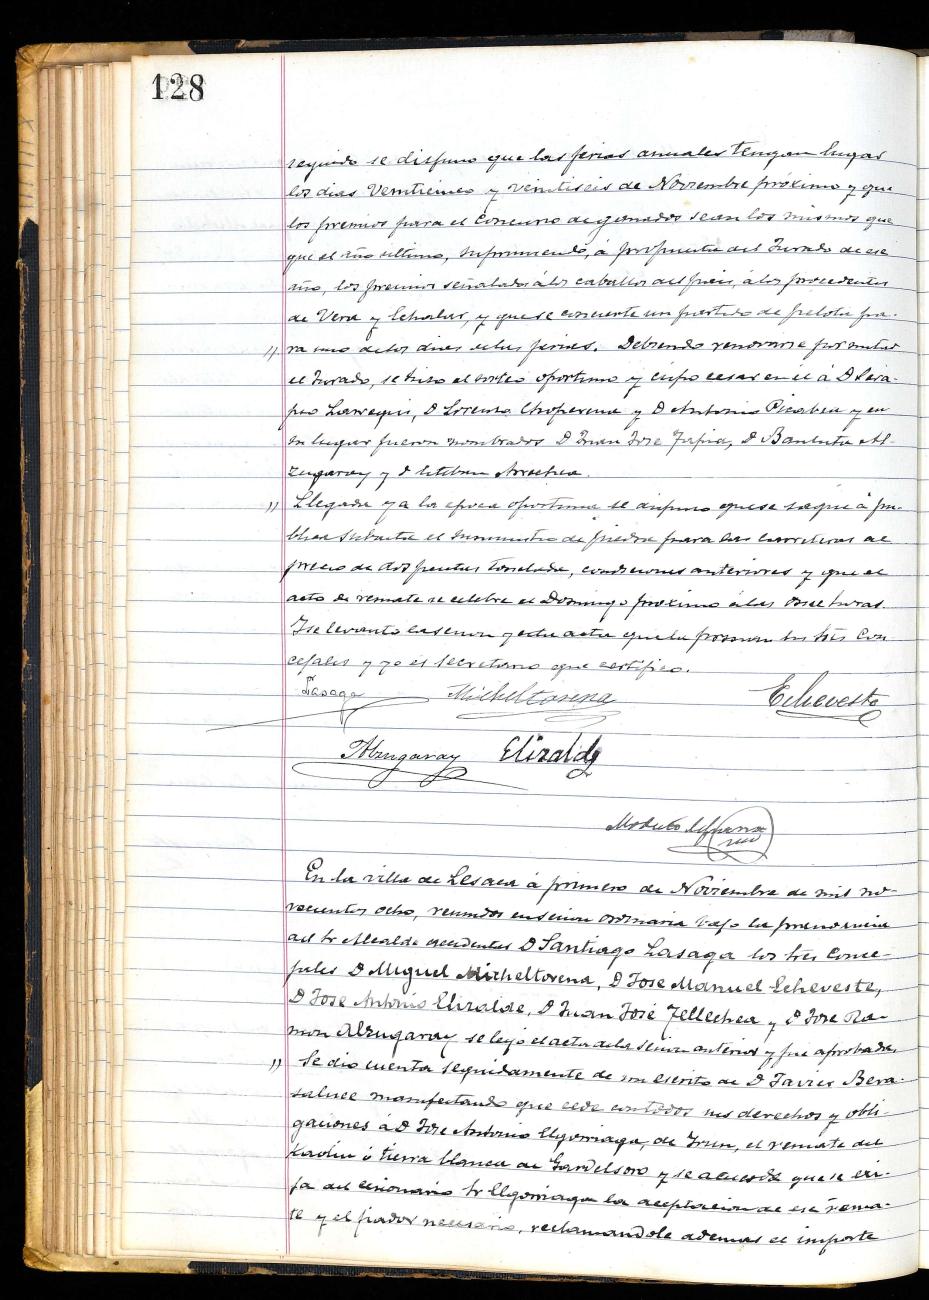 128
seguido se dispuso que las ferias anuales tengan lugar
los dias Veinticinco y veintiseis de Noviembre próximo y que
los premios para el Concurso de ganados sean los mismos que
que el año ultimo, suprimiendo, á propuesta del Jurado de ese
año, los premios señalados á los caballos del pais, á los procedentes
de Vera y Echalar, y que se concierte un partido de pelota pa-
ra uno de los dias de las ferias. Debiendo renovarse por mitad
el Jurado, se hizo el sorteo oportuno y cupo cesar en él á D Sera-
pio Larregui, D Lorenzo Choperena y D Antonio Picabea y en
su lugar fueron nombrados D Juan Jose Tapia, D Bautista Al-
zugaray y D Esteban Arrechea.
Llegada ya la epoca oportuna se dispuso que se saque á pu-
blica subasta el suministro de piedra para las carreteras al
precio de dos pesetas tonelada, condiciones anteriores y que el
acto de remate se celebre el Domingo proximo á las once horas.
Y se levanto la sesion y esta acta que la firman los Srs Con
cejales y yo el secretario que certifico.
Lasaga Micheltorena Echeveste
Alzugaray Elizalde
Modesto
En la villa de Lesaca á primero de Noviembre de mil no-
vecientos ocho, reunidos en sesion ordinaria bajo la presidencia
del Sr Alcalde accidental D Santiago Lasaga los Srs Conce-
jales D Miguel Micheltorena, D Jose Manuel Echeveste,
D Jose Antonio Elizalde, D Juan José Tellechea y D Jose Ra-
mon Alzugaray se leyó el acta de la sesion anterior y fue aprobada.
Se dio cuenta seguidamente de un escrito de D Javier Bera-
saluce manifestando que cede con todos sus derechos y obli-
gaciones á D Jose Antonio Elgorriaga, de Irun, el remate del
Kaolin ó tierra blanca de Gardelsoro y se acuerda que se exi-
ja del cesionario Sr Elgorriaga la aceptacion de ese rema-
te y el fiador necesario, reclamandole ademas el importe